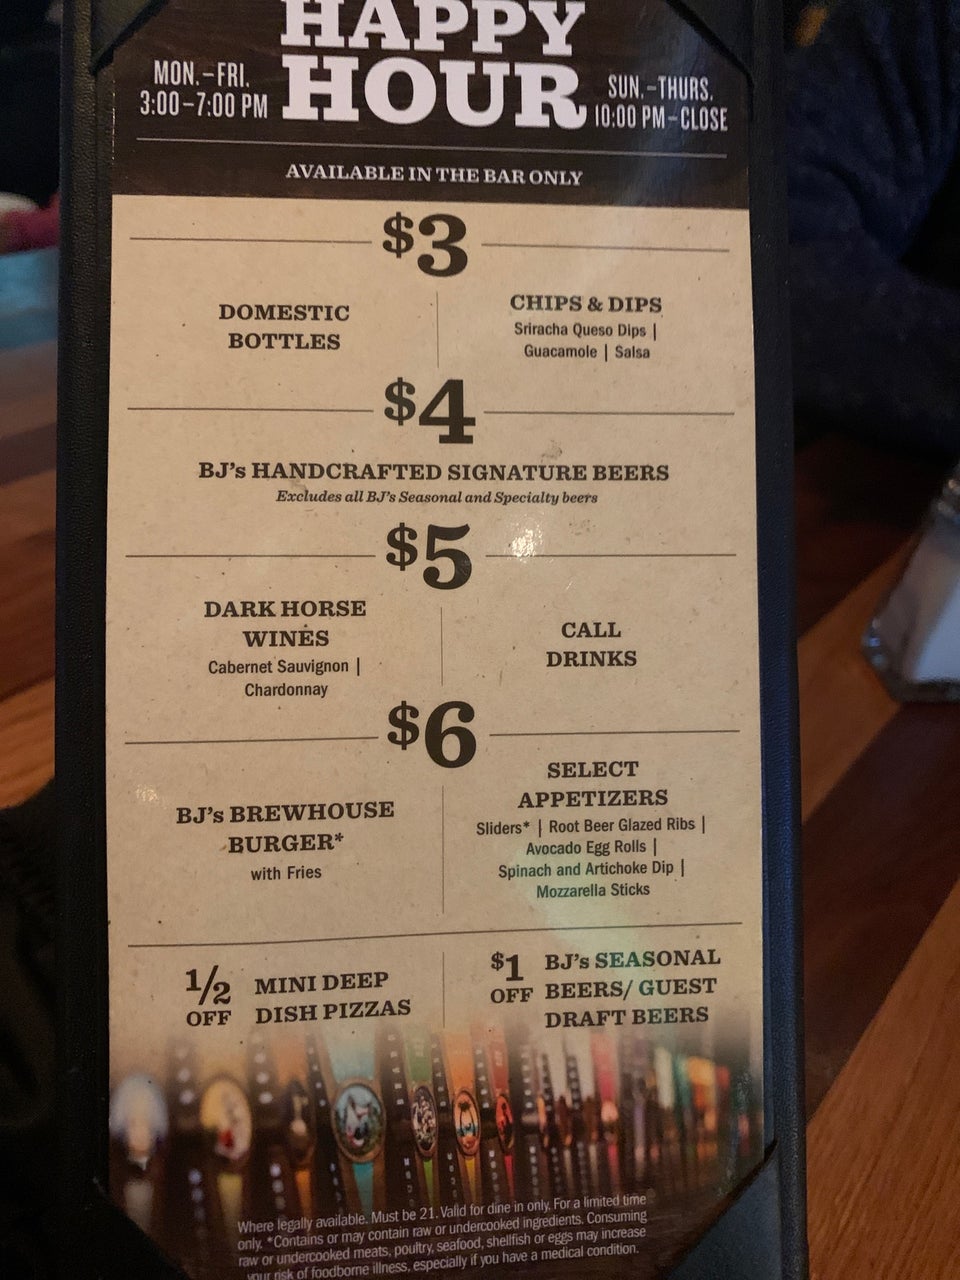 HAPPY
HOUR
MON.–FRI.
3:00–7:00 PM
SUN.–THURS.
10:00 PM–CLOSE
AVAILABLE IN THE BAR ONLY
$3
DOMESTIC
BOTTLES
CHIPS & DIPS
Sriracha Queso Dips |
Guacamole | Salsa
$4
BJ's HANDCRAFTED SIGNATURE BEERS
Excludes all BJ's Seasonal and Specialty beers
$5
DARK HORSE
WINES
Cabernet Sauvignon |
Chardonnay
CALL
DRINKS
$6
BJ's BREWHOUSE
BURGER*
with Fries
SELECT
APPETIZERS
Sliders* | Root Beer Glazed Ribs |
Avocado Egg Rolls |
Spinach and Artichoke Dip |
Mozzarella Sticks
1/2
OFF
MINI DEEP
DISH PIZZAS
$1
OFF
BJ's SEASONAL
BEERS/ GUEST
DRAFT BEERS
Where legally available. Must be 21. Valid for dine in only. For a limited time
only. *Contains or may contain raw or undercooked ingredients. Consuming
raw or undercooked meats, poultry, seafood, shellfish or eggs may increase
your risk of foodborne illness, especially if you have a medical condition.